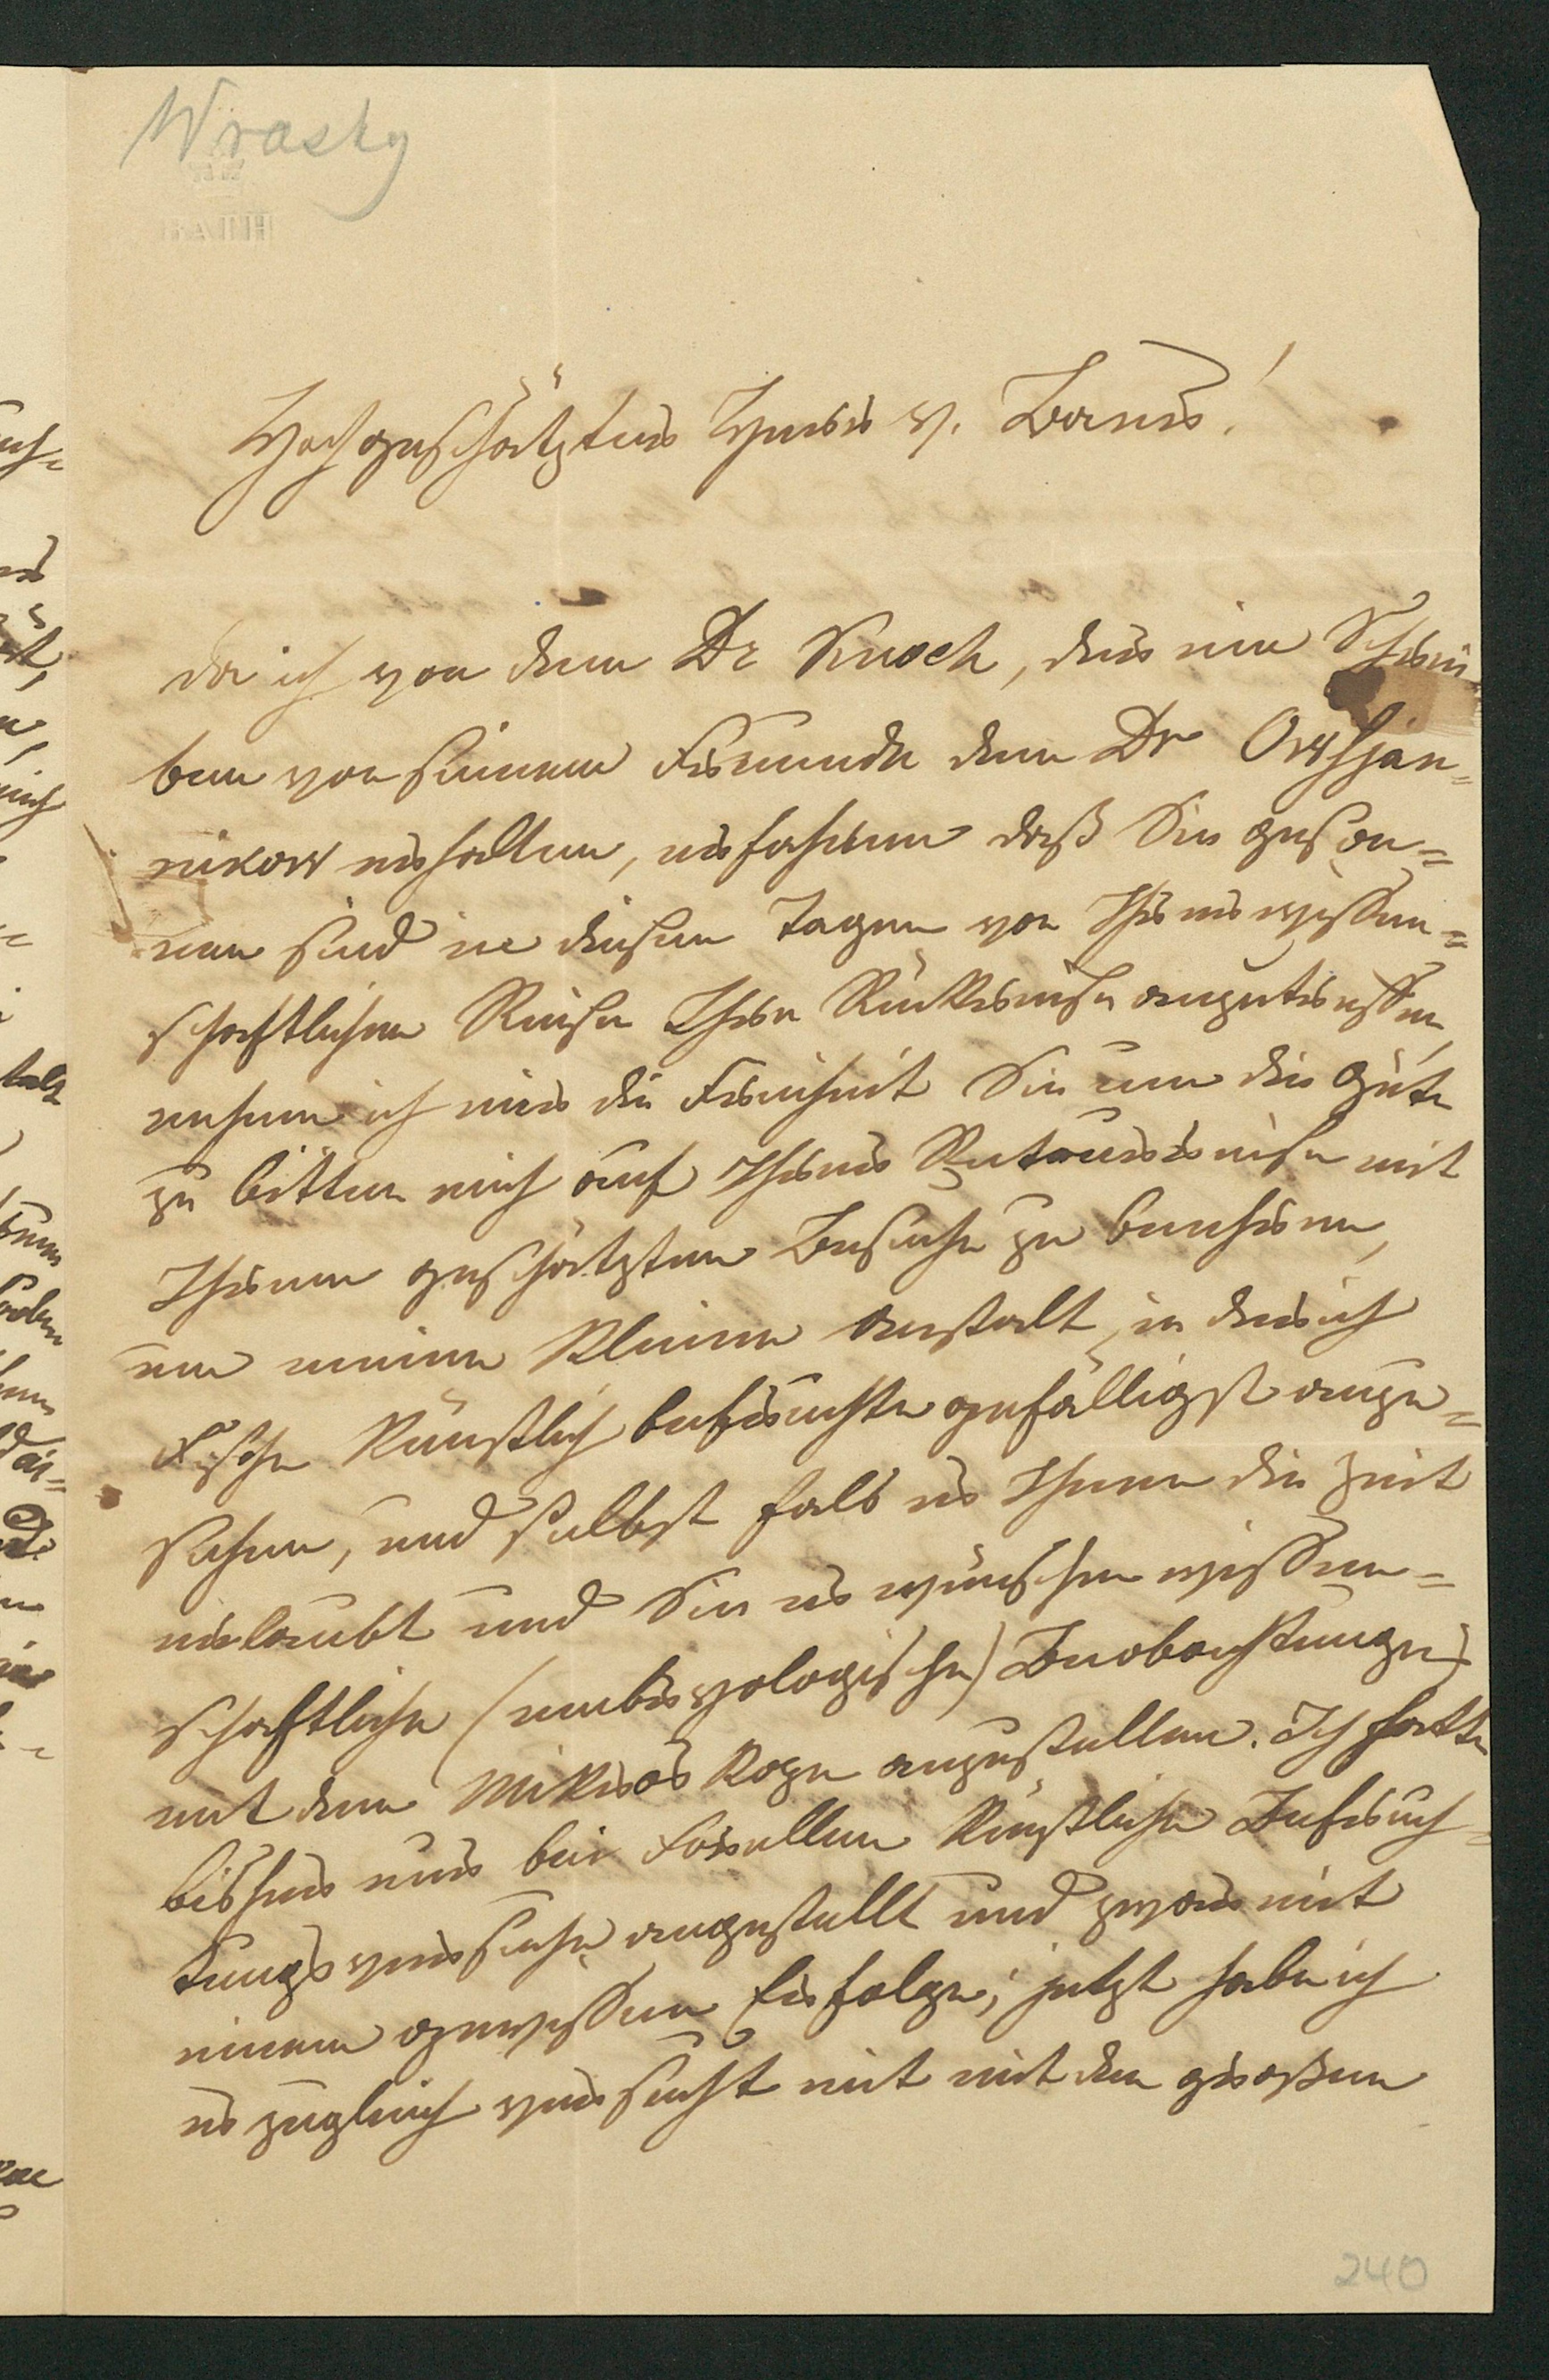 Wrasky
Hochgeschätzter Herr v. Baer!
da ich von dem Dr Knoch, der ein Schrei-
ben von seinem Freunde dem Dr Owsjan=
nikow erhalten, erfahren daß Sie geson=
nen sind in diesen Tagen von Ihrer wissen=
schaftlichen Reise Ihre Rückreise anzutreten,
nehme ich mir die Freiheit Sie um die Güte
zu bitten mich auf Ihrer Retourreise mit
Ihrem geschätzten Besuche zu beehren,
um meine kleine Anstalt, in der ich
Fische künstlich befruchte gefälligst anzu=
sehen, und selbst fals es Ihnen die Zeit
erlaubt und Sie es wünschen wissen=
schaftliche (embryologische) Beobachtungen
mit dem Mikroskope anzustellen. Ich hatte
bisher nur bei Forellen künstliche Befruch=
tungsversuche angestellt und zwar mit
einem gewissen Erfolge; jetzt habe ich
es zugleich versucht mit mit den großen
240